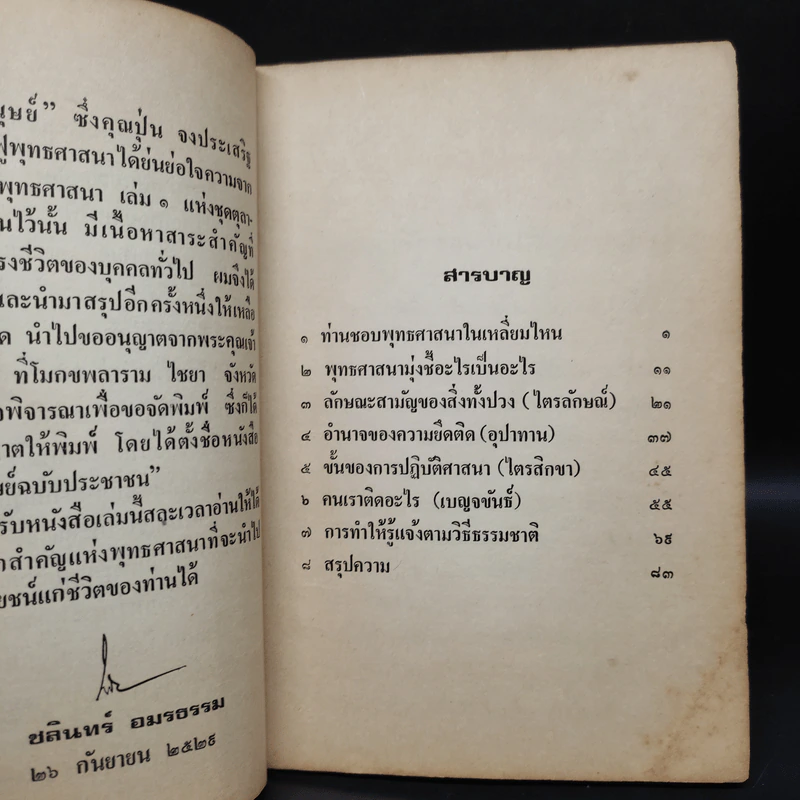 นุษย์” ซึ่งคุณปุ่น จงประเสริฐ
ฟูพุทธศาสนาได้ย่นย่อใจความจาก
พุทธศาสนา เล่ม ๑ แห่งชุดตุลา-
นไว้นั้น มีเนื้อหาสาระสำคัญที่
รงชีวิตของบุคคลทั่วไป ผมจึงได้
และนำมาสรุปอีกครั้งหนึ่งให้เหลือ
ด นำไปขออนุญาตจากพระคุณเจ้า
ที่โมกขพลาราม ไชยา จังหวัด
อพิจารณาเพื่อขอจัดพิมพ์ ซึ่งก็ได้
าตให้พิมพ์ โดยได้ตั้งชื่อหนังสือ
ษย์ฉบับประชาชน”
รับหนังสือเล่มนี้สละเวลาอ่านให้ได้
กสำคัญแห่งพุทธศาสนาที่จะนำไป
ยชน์แก่ชีวิตของท่านได้
ชลินทร์ อมรธรรม
๒๖ กันยายน ๒๕๒๙
สารบาญ
๑ ท่านชอบพุทธศาสนาในเหลี่ยมไหน ๑
๒ พุทธศาสนามุ่งชี้อะไรเป็นอะไร ๑๑
๓ ลักษณะสามัญของสิ่งทั้งปวง (ไตรลักษณ์) ๒๑
๔ อำนาจของความยึดติด (อุปาทาน) ๓๗
๕ ขั้นของการปฏิบัติศาสนา (ไตรสิกขา) ๔๕
๖ คนเราติดอะไร (เบญจขันธ์) ๕๕
๗ การทำให้รู้แจ้งตามวิธีธรรมชาติ ๖๙
๘ สรุปความ ๘๓